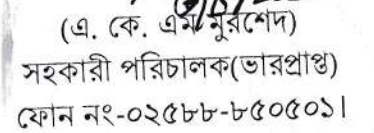 (এ. কে. এম নুরশেদ)
সহকারী পরিচালক(ভারপ্রাপ্ত)
ফোন নং-০২৫৮৮-৮৫০৫০১।